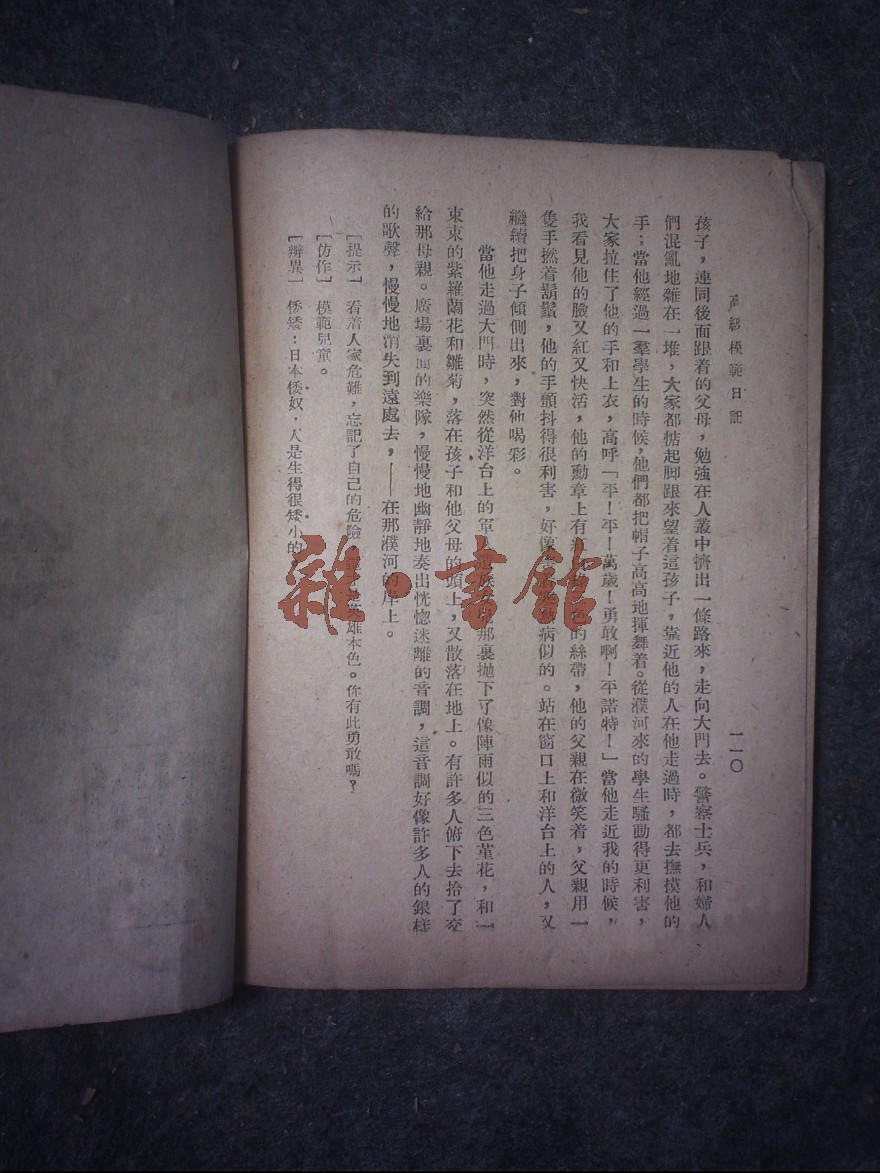 高級模範日記
一一〇
孩子，連同後面跟着的父母，勉強在人叢中擠出一條路來，走向大門去。警察士兵，和婦人
們混亂地雜在一堆，大家都惦起脚跟來望着這孩子，靠近他的人在他走過時，都去撫摸他的
手；當他經過一羣學生的時候，他們都把帽子高高地揮舞着。從濮河來的學生騷動得更利害，
大家拉住了他的手和上衣，高呼「平！平！萬歲！勇敢啊！平諾特！」當他走近我的時候，
我看見他的臉又紅又快活，他的勳章上有紅 色的絲帶，他的父親在微笑着，父親用一
隻手撚着鬍鬚，他的手顫抖得很利害，好像 病似的。站在窗口上和洋台上的人，又
繼續把身子傾側出來，對他喝彩。
當他走過大門時，突然從洋台上的軍人 那裏拋下了像陣雨似的三色堇花，和一
束束的紫羅蘭花和雛菊，落在孩子和他父母的頭上，又散落在地上。有許多人俯下去拾了交
給那母親。廣場裏面的樂隊，慢慢地幽靜地奏出恍惚迷離的音調，這音調好像許多人的銀樣
的歌聲，慢慢地消失到遠處去，——在那濮河的岸上。
［提示］ 看着人家危難，忘記了自己的危險， 英雄本色。你有此勇敢嗎？
［仿作］ 模範兒童。
［辨異］ 倭矮：日本倭奴，人是生得很矮小的
雜·書館